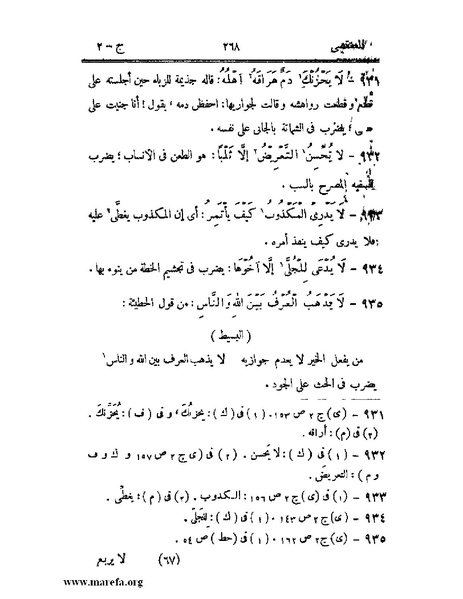 المستقصى ٢٦٨ ج - ٢
٩٣١ - لَا يَحْزُنْكَ١ دَمٌ هَرَاقَهُ٢ أَهْلُهُ: قاله جذيمة للزباء حين أجلسته على
وقطعت رواهشه وقالت لجواريها: احفظن دمه، يقول: أنا جنيت على
يضرب في الشماتة بالجانى على نفسه.
٩٣٢ - لَا يُحْسِنُ١ التَّعْرِيضَ٢ إِلَّا ثَلْبًا: هو الطعن في الانساب؛ يضرب
للسفيه المصرح بالسب.
٩٣٣ - لَا يَدْرِى المَكْذُوبُ١ كَيْفَ يَأْتَمِرُ: أى إن المكذوب يغطى٢ عليه
فلا يدرى كيف ينفذ أمره.
٩٣٤ - لَا يُدْعَى لِلْجُلَّى١ إِلَّا أَخُوْهَا: يضرب في تجشيم الخطة من ينوء بها.
٩٣٥ - لَا يَذْهَبُ الْعُرْفُ بَيْنَ اللهِ وَالنَّاسِ: من قول الحطيئة:
(البسيط)
من يفعل الخير لا يعدم جوازيه لا يذهب العرف بين الله والناس١
يضرب في الحث على الجود.
٩٣١ - (ى) ج ٢ ص ١٥٣. (١) فى (ك): يحزنك، وفى (ف): يُحزنَّكَ.
(٢) فى (م): أراقه.
٩٣٢ - (١) فى (ك): لا يحسن. (٢) فى (ى) ج ٢ ص ١٥٧ و ك و ف
و م): التعريض.
٩٣٣ - (١) فى (ى) ج ٢ ص ١٥٦: الكدوب. (٢) فى (م): يغطِّى.
٩٣٤ - (ى) ج ٢ ص ١٤٣. (١) فى (ك): للجلى.
٩٣٥ - (ى) ج ٢ ص ١٦٢. (١) فى (حط) ص ٥٤.
(٦٧) لا يربع
www.marefa.org